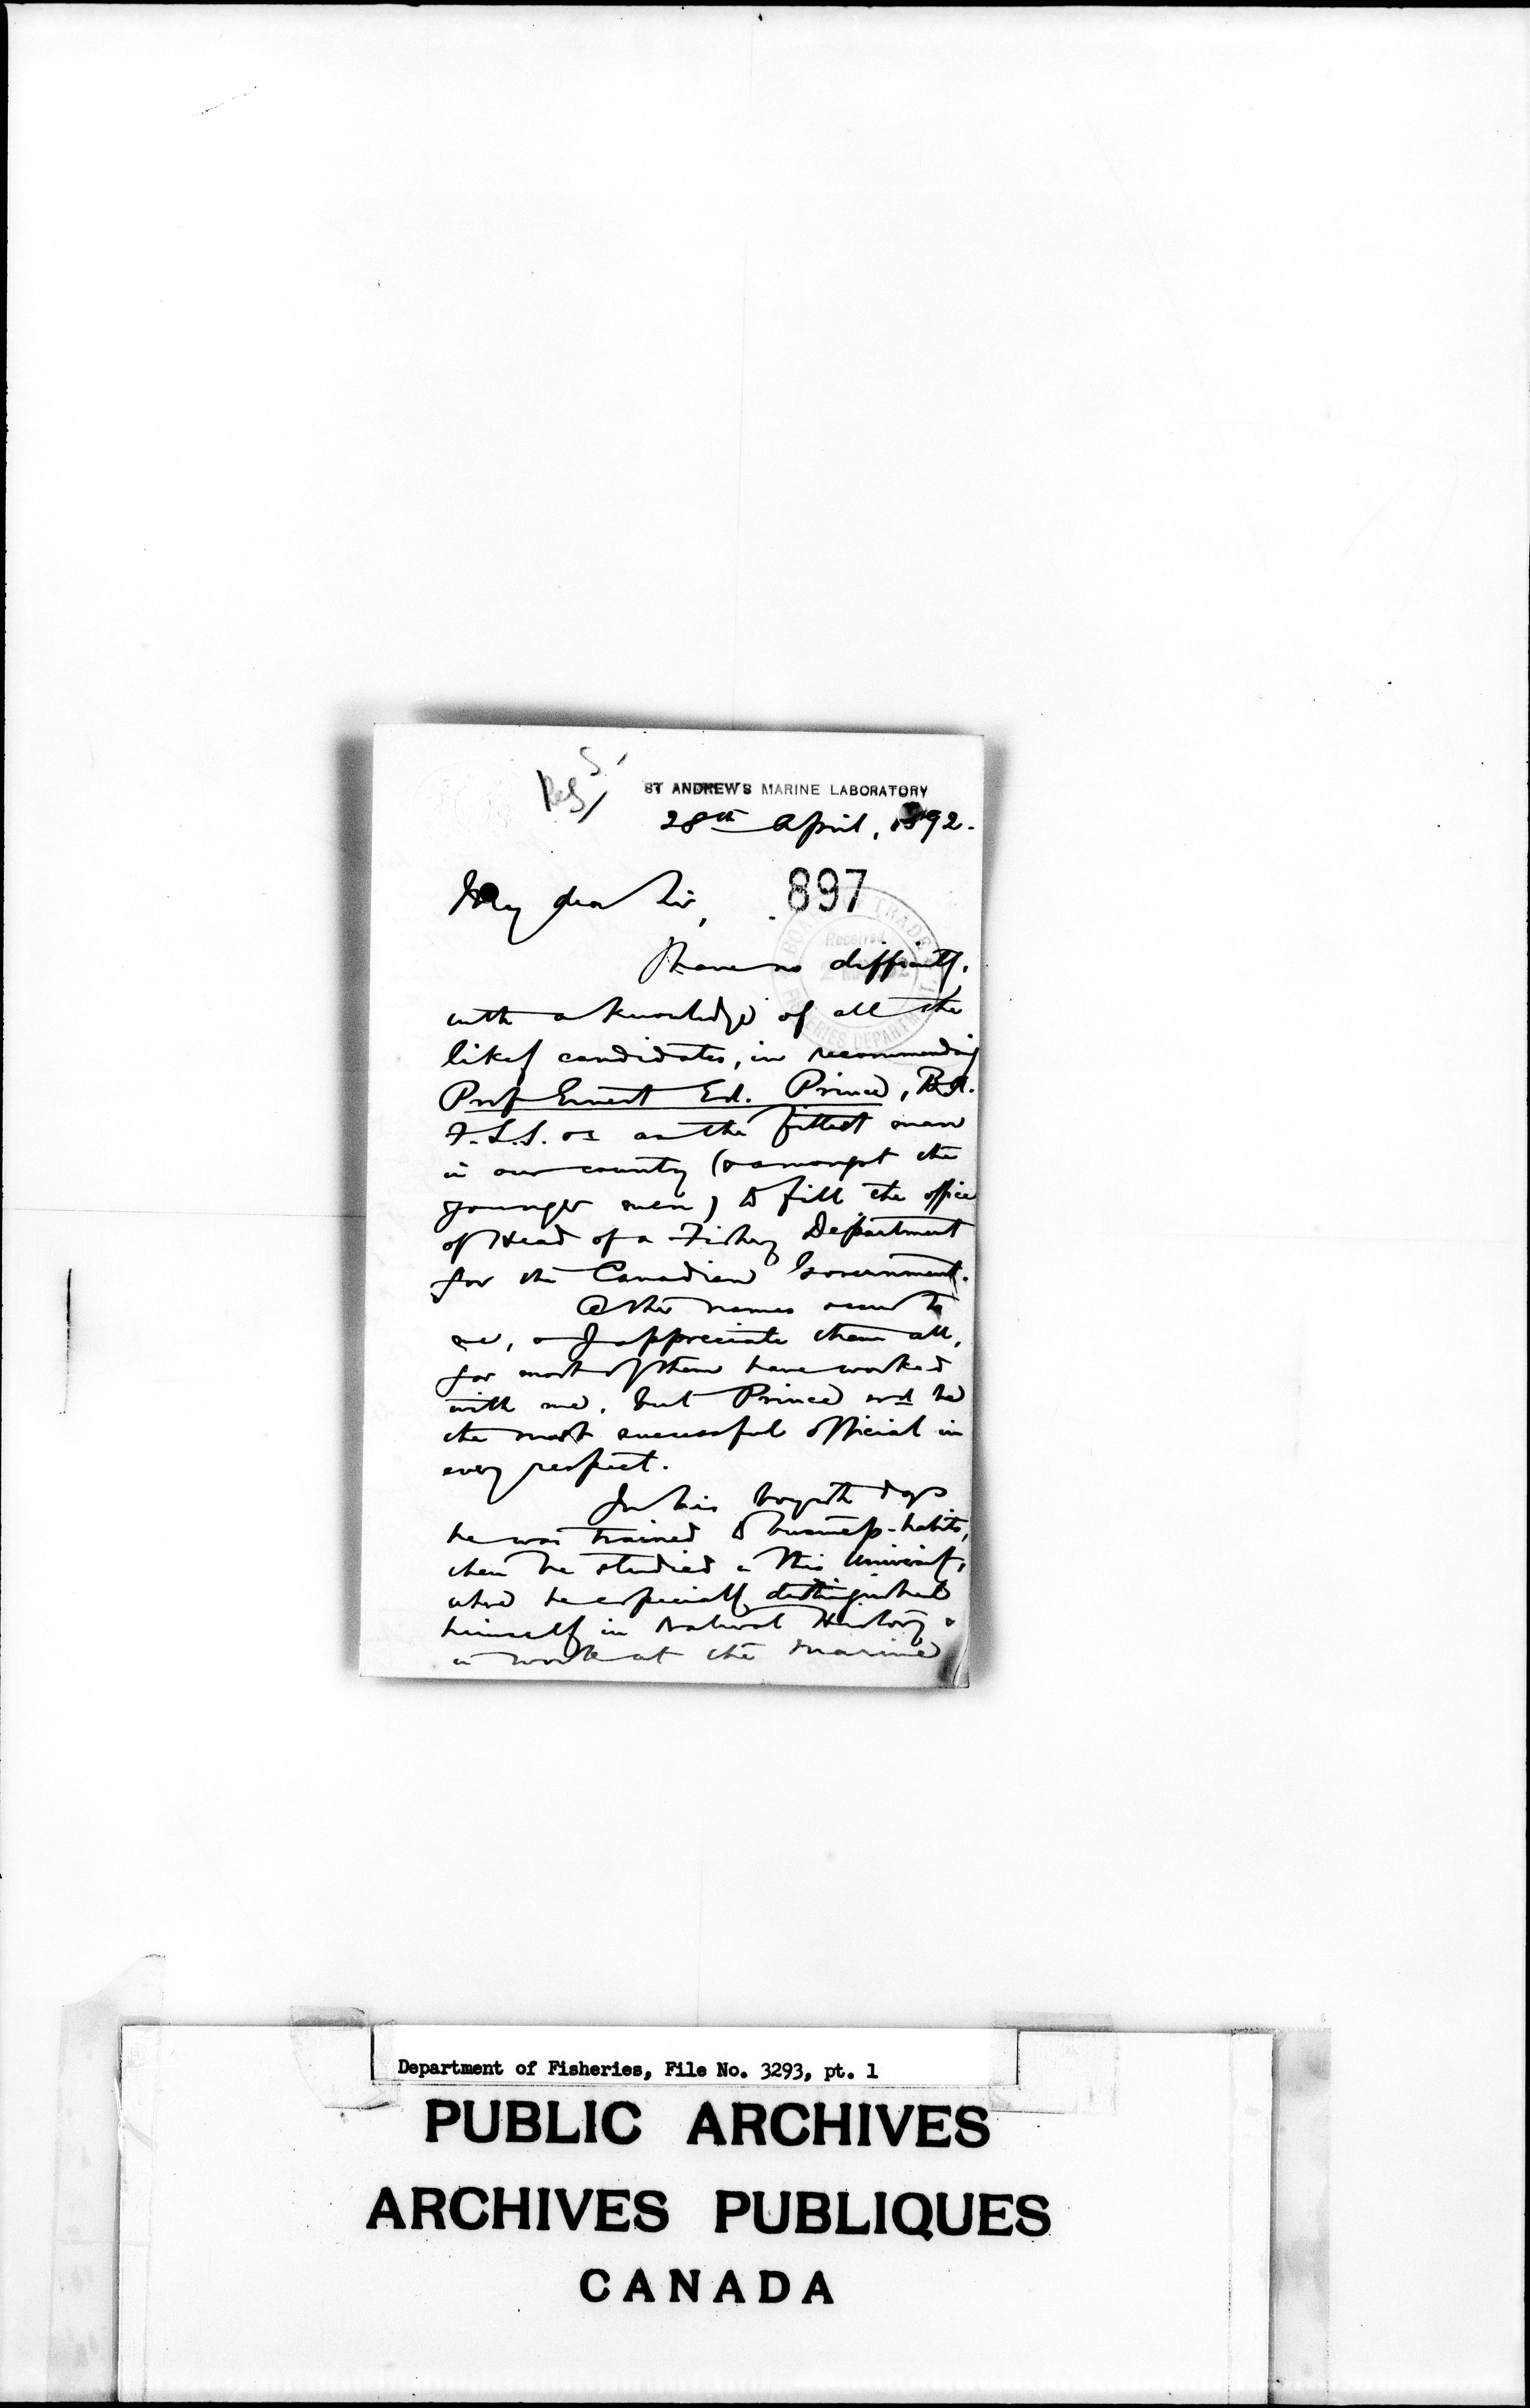 ST ANDREW'S MARINE LABORATORY
28th April, 1892.
My dear Sir,
897
BOARD OF TRADE
Received
FISHERIES DEPARTMENT
I have no difficulty,
with a knowledge of all the
likely candidates, in recommending
Prof Ernest Ed. Prince, B.A.
F.L.S. as the fittest man
in our country (& amongst the
younger men) to fill the office
of Head of a Fishery Department
for the Canadian Government.
Other names occur to
me, & I appreciate them all,
for most of them have worked
with me, but Prince wd be
the most successful official in
every respect.
In his boyish days
he was trained to business-habits,
then he studied in this University,
where he especially distinguished
himself in Natural History &
in work at the Marine
Department of Fisheries, File No. 3293, pt. 1
PUBLIC ARCHIVES
ARCHIVES PUBLIQUES
CANADA